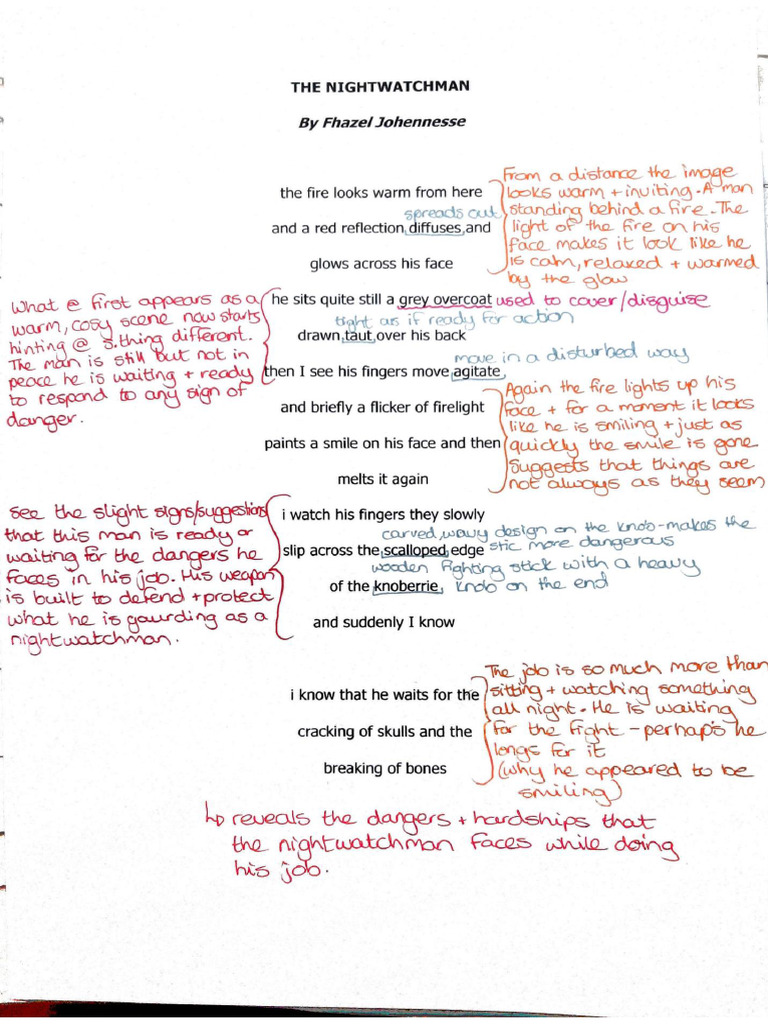 THE NIGHTWATCHMAN
By Fhazel Johennesse
the fire looks warm from here
spreads out
and a red reflection diffuses and
glows across his face
From a distance the image
looks warm + inviting. A man
standing behind a fire. The
light of the fire on his
face makes it look like he
is calm, relaxed + warmed
by the glow
he sits quite still a grey overcoat used to cover/disguise
tight as if ready for action
drawn taut over his back
move in a disturbed way
then I see his fingers move agitate
What @ first appears as a
warm, cosy scene now starts
hinting @ s.thing different.
The man is still but not in
peace he is waiting + ready
to respond to any sign of
danger.
and briefly a flicker of firelight
paints a smile on his face and then
melts it again
Again the fire lights up his
face + for a moment it looks
like he is smiling + just as
quickly the smile is gone
Suggests that things are
not always as they seem
i watch his fingers they slowly
carved, wavy design on the knob-makes the
slip across the scalloped edge stic more dangerous
wooden fighting stick with a heavy
of the knoberrie knob on the end
and suddenly I know
See the slight signs/suggestions
that this man is ready or
waiting for the dangers he
faces in his job. His weapon
is built to defend + protect
what he is gaurding as a
nightwatchman.
i know that he waits for the
cracking of skulls and the
breaking of bones
The job is so much more than
sitting + watching something
all night. He is waiting
for the fight - perhaps he
longs for it
(why he appeared to be
smiling)
↳ reveals the dangers + hardships that
the nightwatchman faces while doing
his job.